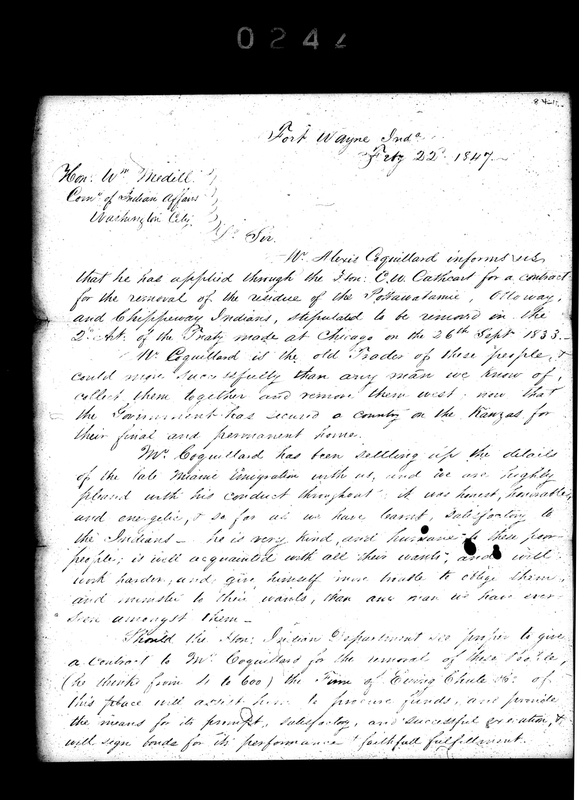 0242
Fort Wayne Inda
Feby 22d 1847
Hon: Wm Medill
Comr of Indian Affairs
Washington City
Dr Sir.
Mr Alexis Coquillard informs us
that he has applied through the Hon: C. W. Cathcart for a contract
for the removal of the residue of the Pottawatamie, Ottoway
and Chippeway Indians, stipulated to be removed in the
2d Art. of the Treaty made at Chicago on the 26th Sept 1833.
Mr Coquillard is the old Trader of these people, &
could more successfully than any man we know of,
collect them together and remove them west: now that
the Government has secured a country on the Kanzas for
their final and permanent home.
Mr Coquillard has been settling up the details
of the late Miami Emigration with us, and we are highly
pleased with his conduct throughout: it was honest, honorable,
and energetic, & so far as we have learnt, satisfactory to
the Indians - he is very kind, and humane to these poor
people; is well acquainted with all their wants; and will
work harder, and give himself more trouble to oblige them,
and minister to their wants, than any man we have ever
seen amongst them -
Should the Hon: Indian Department see proper to give
a contract to Mr Coquillard for the removal of these People,
(he thinks from to 600) the Firm of Ewing Chute & Co of
this place will assist him to procure funds, and provide
the means for its prompt, satisfactory, and successful execution, &
will sign bonds for its performance & faithfull fulfillment.